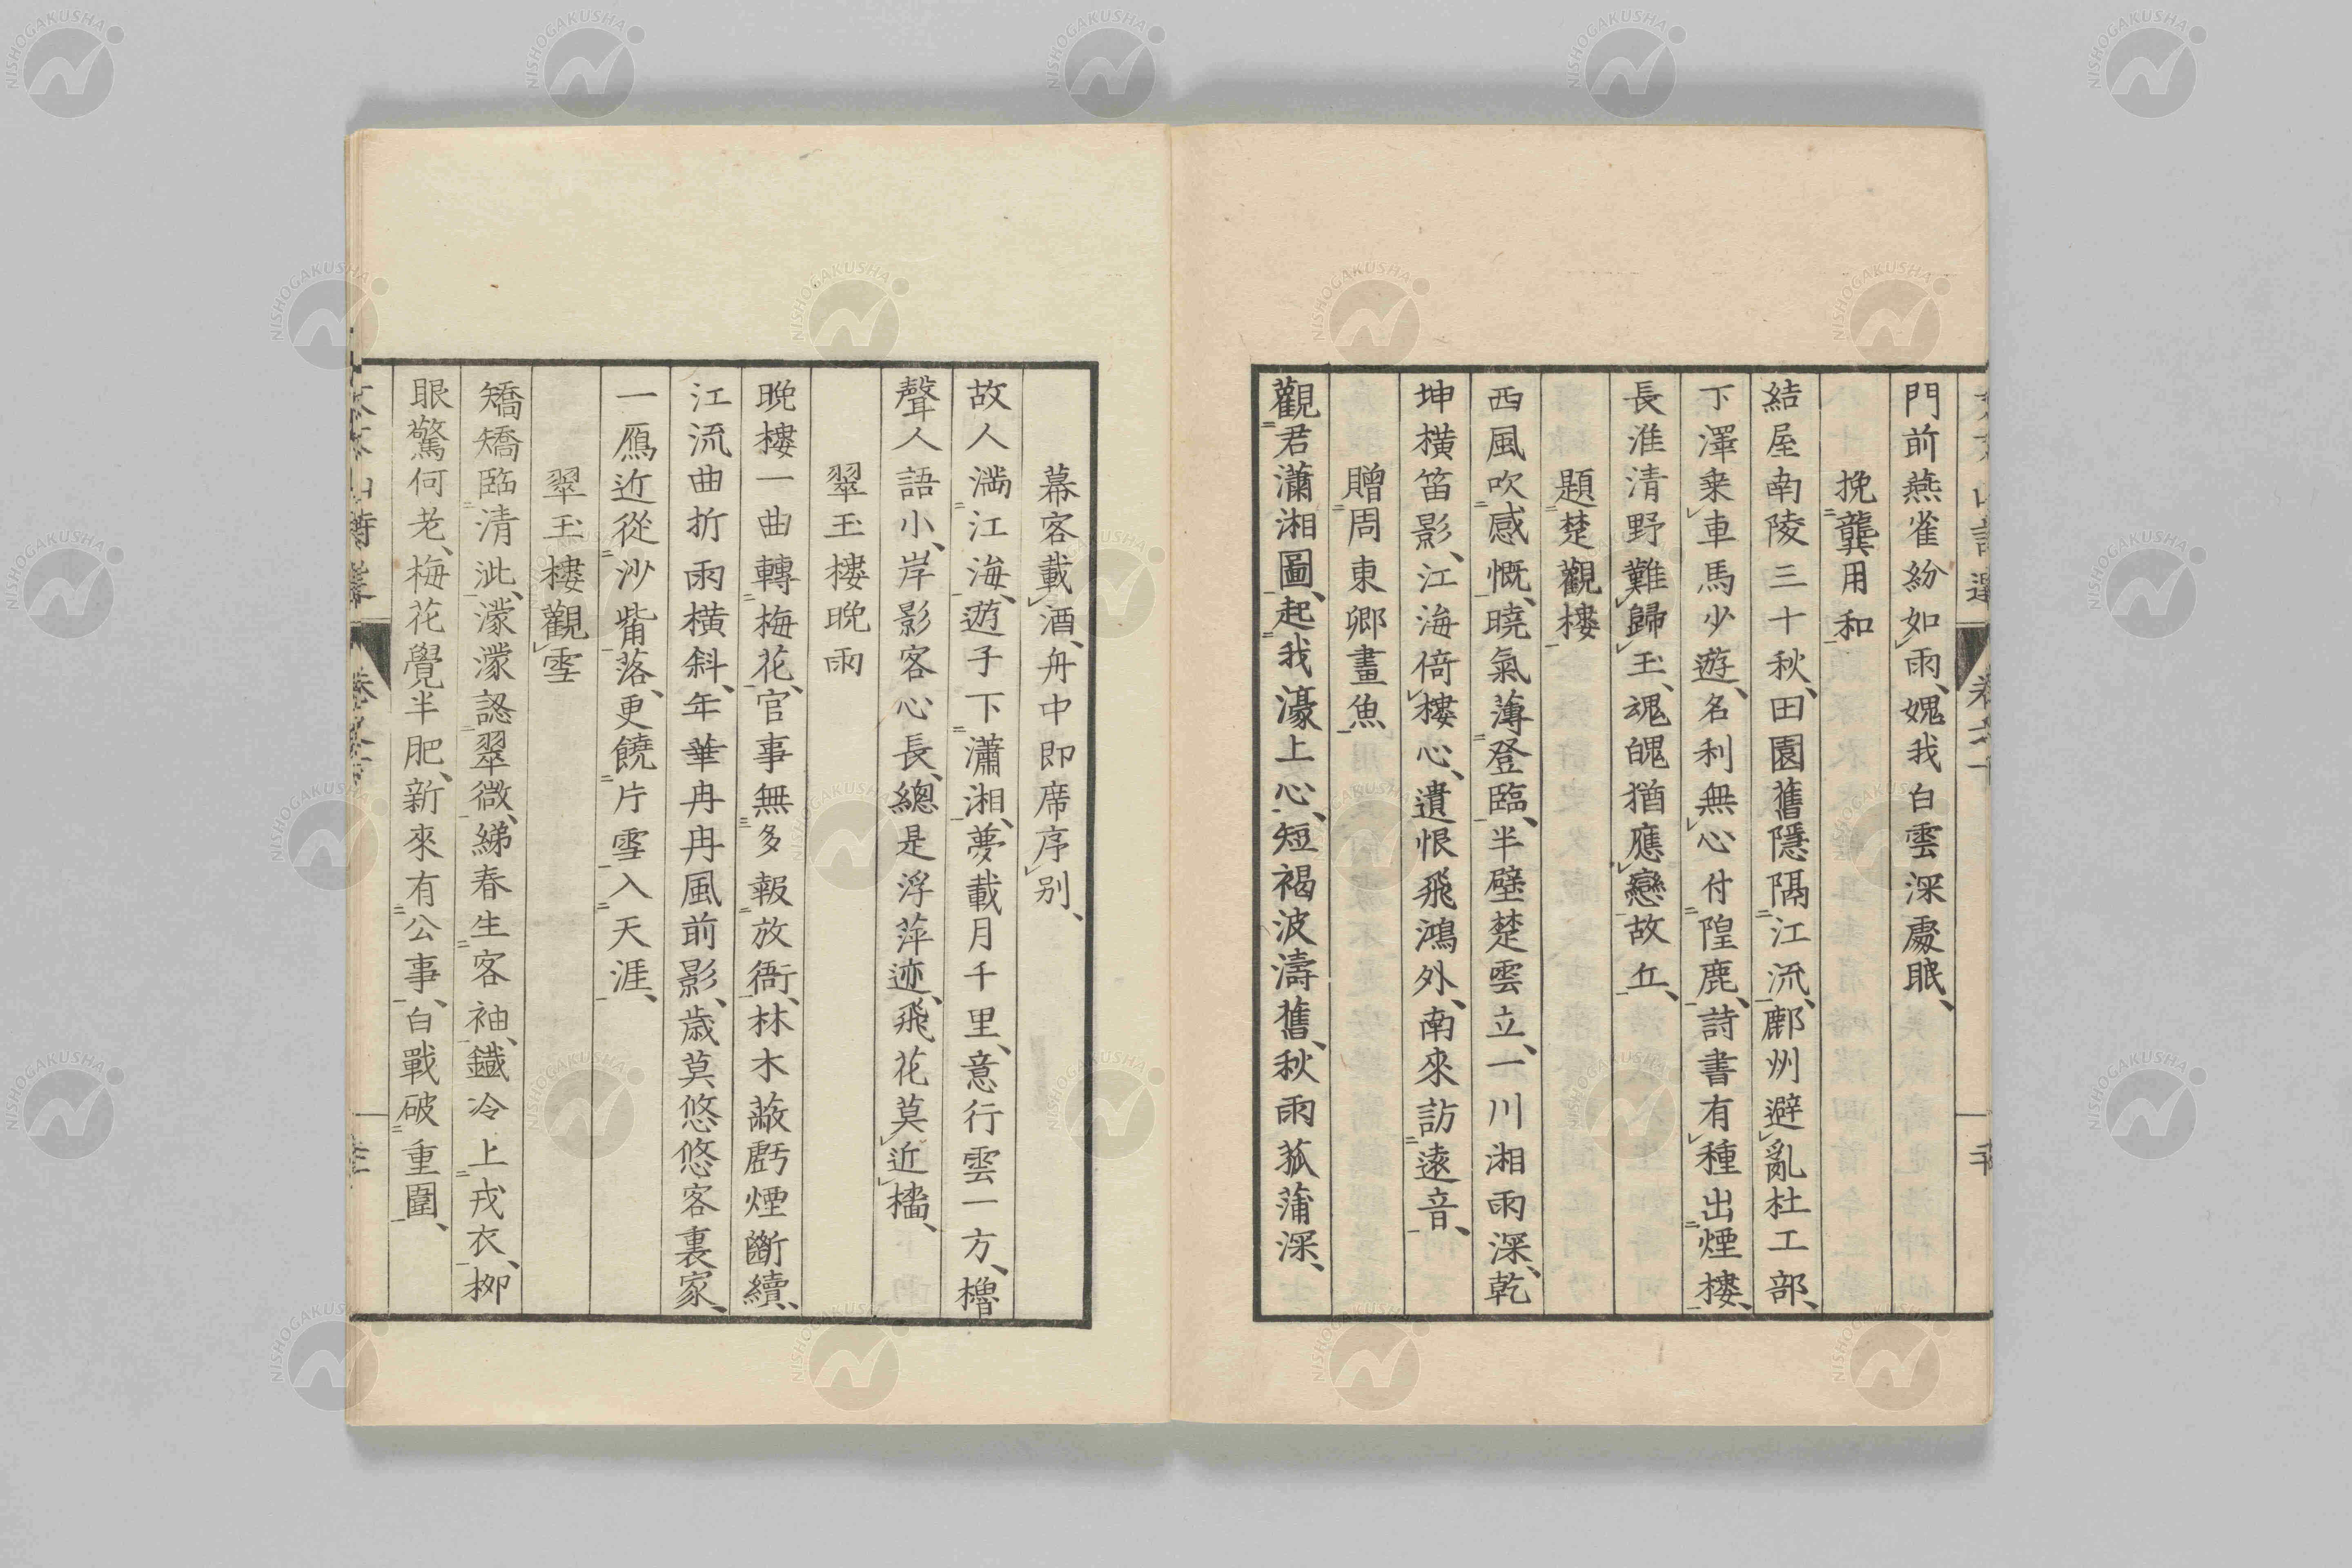 門前燕雀紛如雨、媿我白雲深處眠、
挽龔用和
結屋南陵三十秋、田園舊隱隔江流、鄜州避亂杜工部、
下澤乗車馬少遊、名利無心付隍鹿、詩書有種出煙樓、
長淮清野難歸玉、魂魄猶應戀故丘、
題楚觀樓
西風吹感慨、曉氣薄登臨、半壁楚雲立、一川湘雨深、乾
坤橫笛影、江海倚樓心、遺恨飛鴻外、南來訪遠音、
贈周東卿畫魚
觀君瀟湘圖、起我濠上心、短褐波濤舊、秋雨菰蒲深、
幕客載酒、舟中即席序別、
故人滿江海、遊子下瀟湘、夢載月千里、意行雲一方、櫓
聲人語小、岸影客心長、總是浮萍迹、飛花莫近檣、
翠玉樓晚雨
晚樓一曲轉梅花、官事無多報放衙、林木蔽虧煙斷續、
江流曲折雨橫斜、年華冉冉風前影、歲莫悠悠客裏家、
一鴈近從沙觜落、更饒片雪入天涯、
翠玉樓觀雪
矯矯臨清泚、濛濛認翠微、綈春生客袖、鐵冷上戎衣、柳
眼驚何老、梅花覺半肥、新來有公事、白戰破重圍、
NISHOGAKUSHA